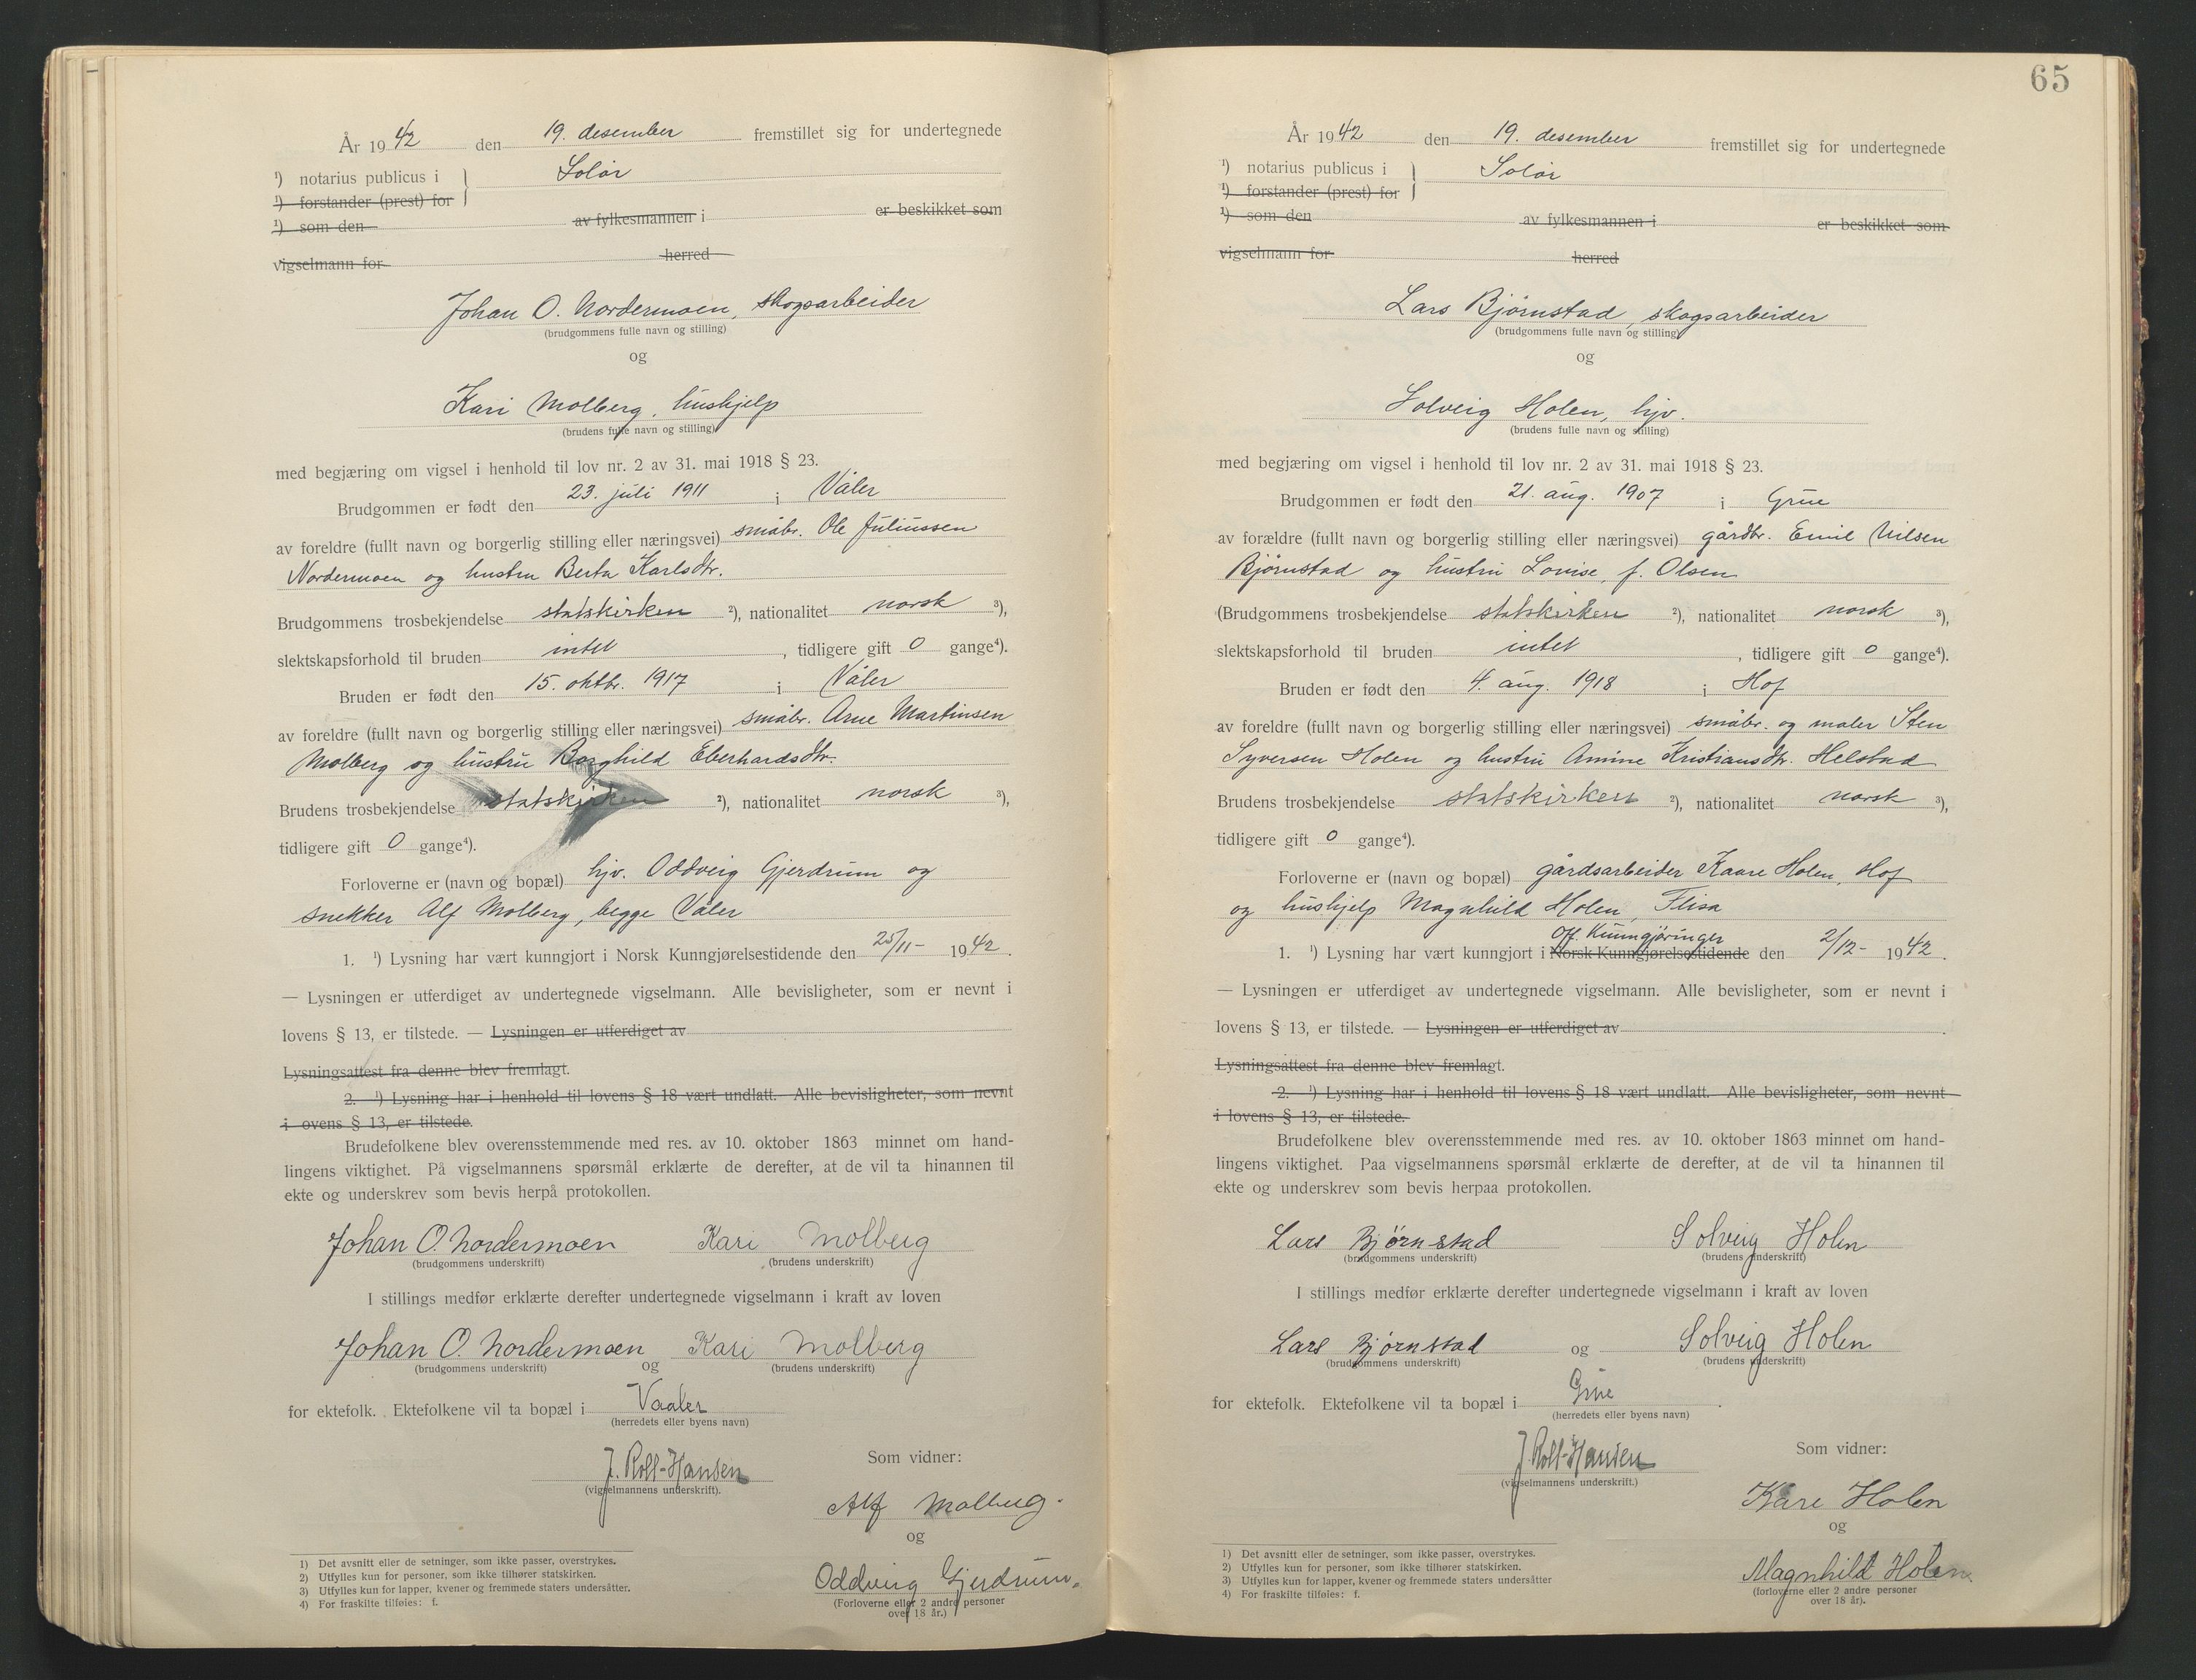 År 1942 den 19. desember fremstillet sig for undertegnede
¹) notarius publicus i Solør
¹) forstander (prest) for
¹) som den av fylkesmannen i er beskikket som
vigselmann for herred
Johan O. Nordermoen, skogsarbeider
(brudgommens fulle navn og stilling)
og
Kari Molberg, hushjelp
(brudens fulle navn og stilling)
med begjæring om vigsel i henhold til lov nr. 2 av 31. mai 1918 § 23.
Brudgommen er født den 23. juli 1911 i Våler
av foreldre (fullt navn og borgerlig stilling eller næringsvei) småbr. Ole Juliussen
Nordermoen og hustru Berta Karlsdtr.
Brudgommens trosbekjendelse statskirken ²), nationalitet norsk ³),
slektskapsforhold til bruden intet, tidligere gift 0 gange⁴).
Bruden er født den 15. oktbr. 1917 i Våler
av foreldre (fullt navn og borgerlig stilling eller næringsvei) småbr. Arne Martinsen
Molberg og hustru Borghild Eberhardsdtr.
Brudens trosbekjendelse statskirken ²), nationalitet norsk ³),
tidligere gift 0 gange⁴).
Forloverne er (navn og bopæl) hjv. Oddveig Gjerdrum og
snekker Alf Molberg, begge Våler
1. ¹) Lysning har vært kunngjort i Norsk Kunngjørelsestidende den 25/11- 1942.
— Lysningen er utferdiget av undertegnede vigselmann. Alle bevisligheter, som er nevnt i
lovens § 13, er tilstede. — Lysningen er utferdiget av
Lysningsattest fra denne blev fremlagt.
2. ¹) Lysning har i henhold til lovens § 18 vært undlatt. Alle bevisligheter, som nevnt
i ovens § 13, er tilstede.
Brudefolkene blev overensstemmende med res. av 10. oktober 1863 minnet om hand-
lingens viktighet. På vigselmannens spørsmål erklærte de derefter, at de vil ta hinannen til
ekte og underskrev som bevis herpå protokollen.
Johan O. Nordermoen Kari Molberg
(brudgommens underskrift) (brudens underskrift)
I stillings medfør erklærte derefter undertegnede vigselmann i kraft av loven
Johan O. Nordermoen og Kari Molberg
(brudgommens underskrift) (brudens underskrift)
for ektefolk. Ektefolkene vil ta bopæl i Vaaler
(herredets eller byens navn)
Som vidner:
J. Roll-Hansen
(vigselmannens underskrift).
Alf Molberg.
og
Oddveig Gjerdrum.
(Forloverne eller 2 andre personer
over 18 år.)
1) Det avsnitt eller de setninger, som ikke passer, overstrykes.
2) Utfylles kun for personer, som ikke tilhører statskirken.
3) Utfylles kun for lapper, kvener og fremmede staters undersåtter.
4) For fraskilte tilføies: f.
65
År 1942 den 19. desember fremstillet sig for undertegnede
¹) notarius publicus i Solør
¹) forstander (prest) for
¹) som den av fylkesmannen i er beskikket som
vigselmann for herred
Lars Bjørnstad, skogsarbeider
(brudgommens fulle navn og stilling)
og
Solveig Holen, hjv.
(brudens fulle navn og stilling)
med begjæring om vigsel i henhold til lov nr. 2 av 31. mai 1918 § 23.
Brudgommen er født den 21. aug. 1907 i Grue
av forældre (fullt navn og borgerlig stilling eller næringsvei) gårdbr. Emil Nilsen
Bjørnstad og hustru Lovise, f. Olsen
(Brudgommens trosbekjendelse statskirken ²), nationalitet norsk ³),
slektskapsforhold til bruden intet, tidligere gift 0 gange⁴).
Bruden er født den 4. aug. 1918 i Hof
av foreldre (fullt navn og borgerlig stilling eller næringsvei) småbr. og maler Sten
Syversen Holen og hustru Amine Kristiansdtr. Helstad
Brudens trosbekjendelse statskirken ²), nationalitet norsk ³),
tidligere gift 0 gange⁴).
Forloverne er (navn og bopæl) gårdsarbeider Kaare Holen, Hof
og hushjelp Magnhild Holen, Flisa
Off. Kunngjøringer
1. ¹) Lysning har vært kunngjort i Norsk Kunngjørelsestidende den 2/12- 1942.
— Lysningen er utferdiget av undertegnede vigselmann. Alle bevisligheter, som er nevnt i
lovens § 13, er tilstede. — Lysningen er utferdiget av.
Lysningsattest fra denne blev fremlagt.
2. ¹) Lysning har i henhold til lovens § 18 vært undlatt. Alle bevisligheter, som nevnt
i lovens § 13, er tilstede.
Brudefolkene blev overensstemmende med res. av 10. oktober 1863 minnet om hand-
lingens viktighet. Paa vigselmannens spørsmål erklærte de derefter, at de vil ta hinannen til
ekte og underskrev som bevis herpaa protokollen.
Lars Bjørnstad Solveig Holen
(brudgommens underskrift) (brudens underskrift)
I stillings medfør erklærte derefter undertegnede vigselmann i kraft av loven
Lars Bjørnstad og Solveig Holen
(brudgommens underskrift) (brudens underskrift)
for ektefolk. Ektefolkene vil ta bopæl i Grue.
(herredets eller byens navn)
Som vidner:
J. Roll-Hansen
(vigselmannens underskrift.)
Kåre Holen
og
Magnhild Holen.
(forloverne eller 2 andre personer
over 18 år).
1) Det avsnitt eller de setninger, som ikke passer, overstrykes.
2) Utfylles kun for personer, som ikke tilhører statskirken.
3) Utfylles kun for lapper, kvener og fremmede staters undersåtter
4) For fraskilte tilføies: f.